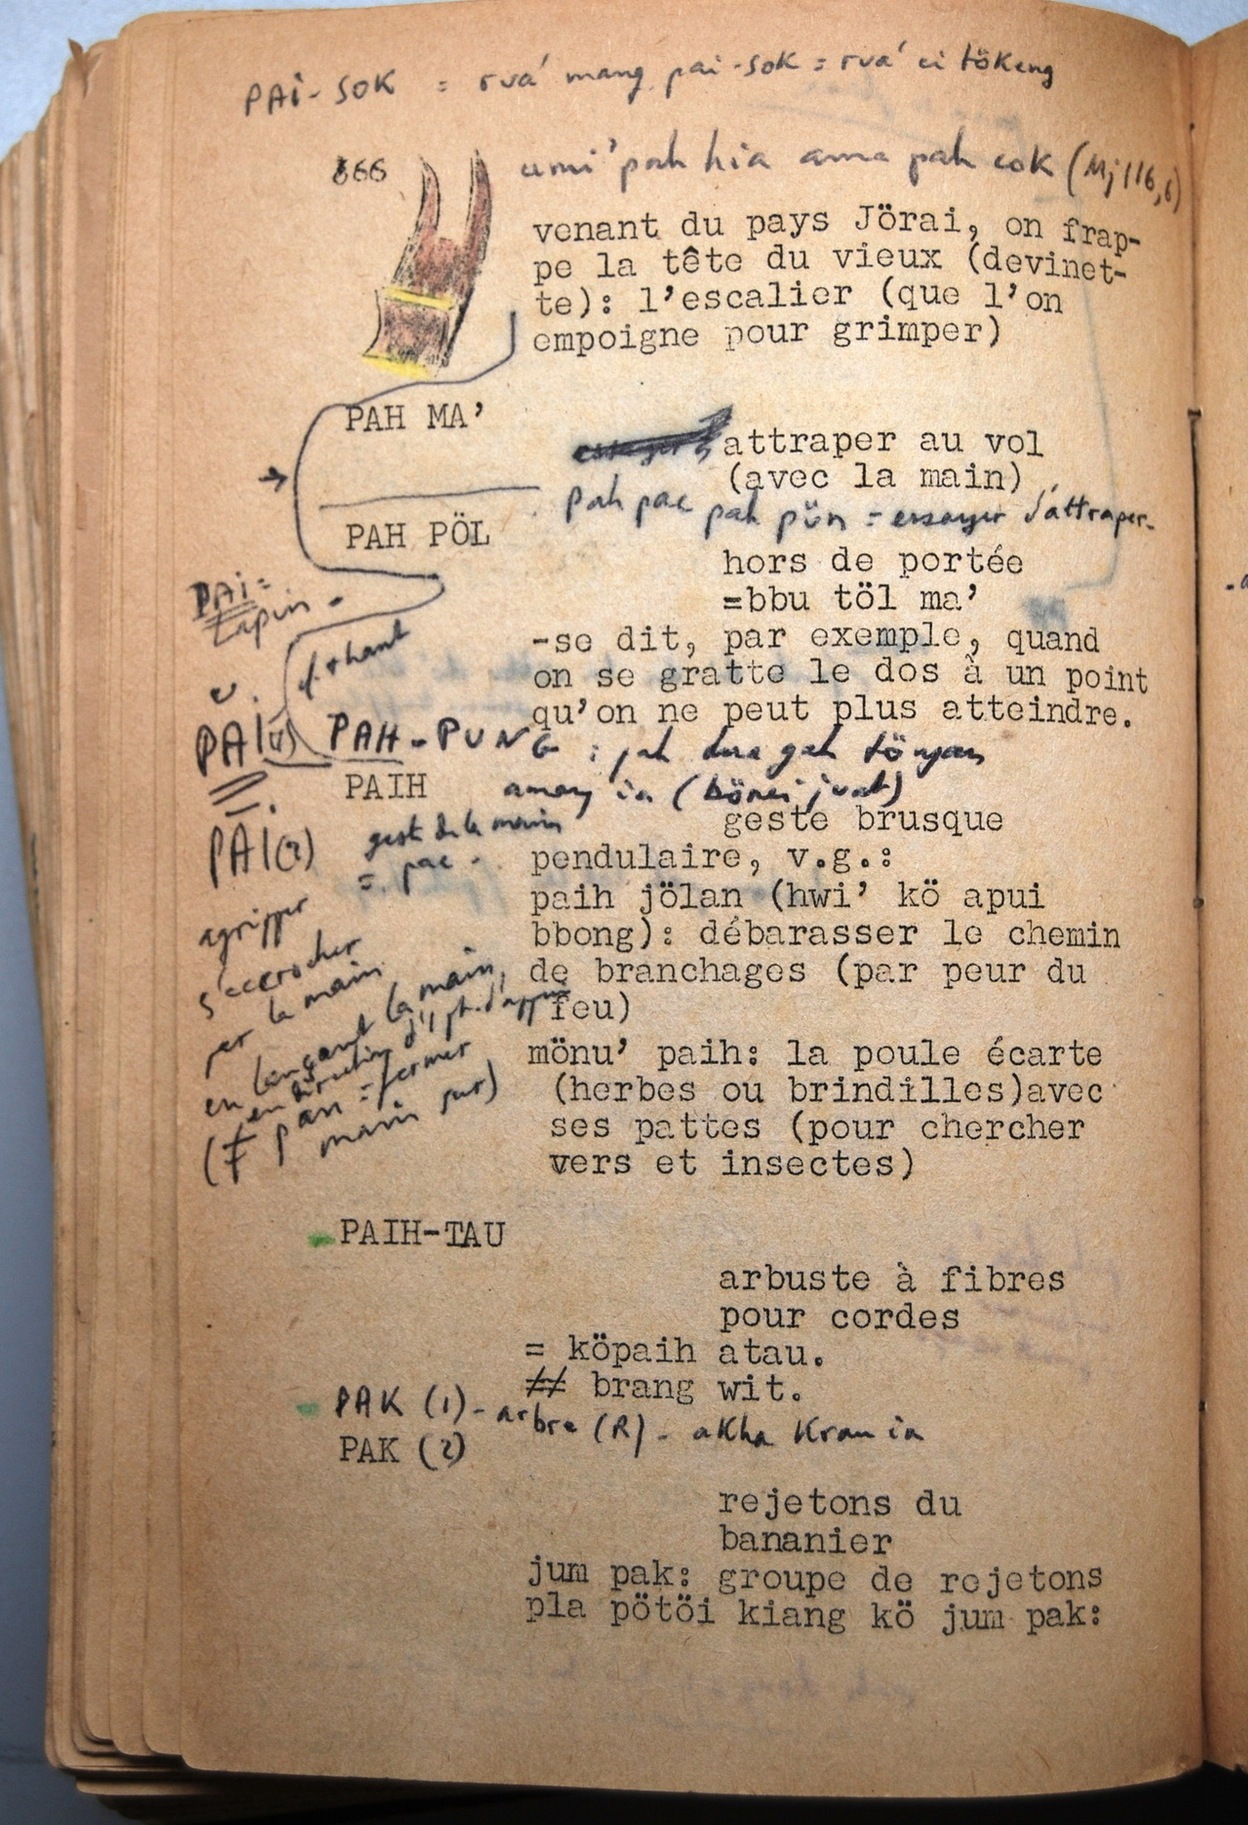 PAI-SOK = ruá mang pai-sok = ruá ei tökeng
666
pah hia ama pah cok (Mj 116,6)
venant du pays Jörai, on frap-
pe la tête du vieux (devinet-
te): l'escalier (que l'on
empoigne pour grimper)
PAH MA'
attraper au vol
(avec la main)
pah pac pah pün = essayer d'attraper.
PAH PÖL
hors de portée
=bbu töl ma'
PAI =
Lapin -
-se dit, par exemple, quand
on se gratte le dos à un point
qu'on ne peut plus atteindre.
v. + haut
PAI (1)
PAH-PUNG :
PAIH
geste brusque
PAI (2)
geste de la main
= pac -
pendulaire, v.g.:
paih jölan (hwi' kö apui
bbong): débarasser le chemin
de branchages (par peur du
feu)
agripper
s'accrocher
par la main
en lançant la main,
en direction d'1 pt. d'appui
(≠ pan = fermer
main sur)
mönu' paih: la poule écarte
(herbes ou brindilles)avec
ses pattes (pour chercher
vers et insectes)
PAIH-TAU
arbuste à fibres
pour cordes
= köpaih atau.
≠ brang wit.
PAK (1) - arbre (R) - akha kran ia
PAK (2)
rejetons du
bananier
jum pak: groupe de rejetons
pla pötöi kiang kö jum pak: